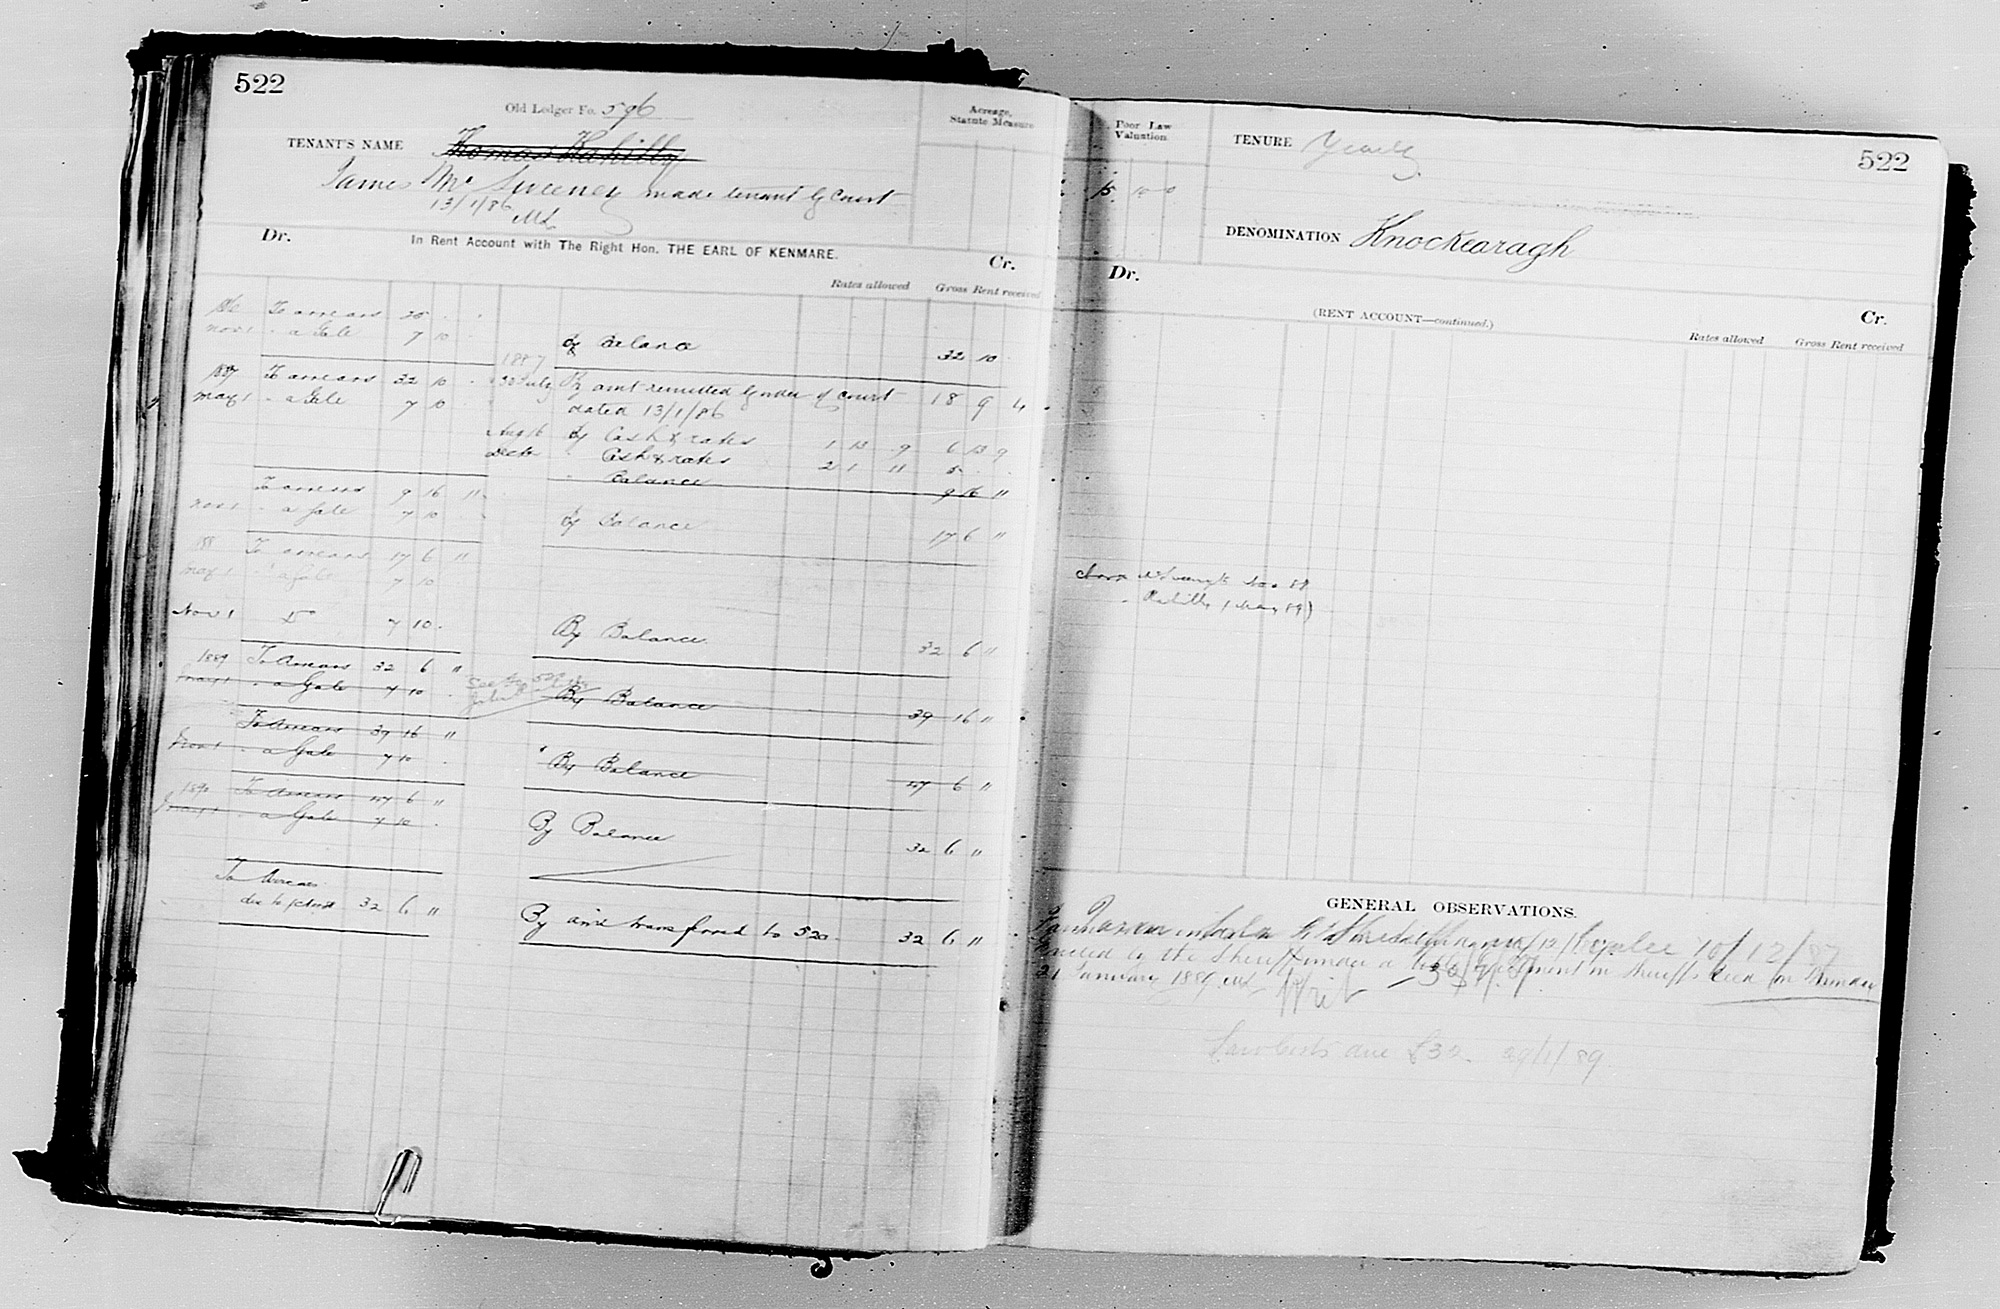 522
Old Ledger Fo. 596
Acreage,
Statute Measure
TENANT'S NAME Thomas Rahilly
James McSweeney made tenant by Court
13/1/86
Dr. In Rent Account with The Right Hon. THE EARL OF KENMARE. Cr.
Rates allowed Gross Rent received
To arrears 25
Nov 1 " a Gale 7 10
By Balance 32 10
1887 To arrears 32 10
May 1 " a Gale 7 10
1887
30 July By amt remitted by order of Court 18 9 4
dated 13/1/86
Aug 16 By Cash & rates 1 13 9 6 13 9
Decr " Cash & rates 2 1 11 5
" Balance 9 16 11
To arrears 9 16 11
Nov 1 " a Gale 7 10
By Balance 17 6 11
188 To arrears 17 6 11
May 1 " a Gale 7 10
Nov 1 Do 7 10
By Balance 32 6 11
1889 To Arrears 32 6 11
May 1 " a Gale 7 10
By Balance 39 16 11
To Arrears 39 16 11
Nov 1 " a Gale 7 10
By Balance 47 6 11
1890 To Arrears 47 6 11
May 1 " a Gale 7 10
By Balance 32 6 11
To Arrears
due to 32 6 11
By amt transferred to 520 32 6 11
Poor Law
Valuation
15 10 0
TENURE Yearly
522
DENOMINATION Knockearagh
Dr.
(RENT ACCOUNT—continued.)
Cr.
Rates allowed Gross Rent received
Nov 89
Rahilly (May 89)
GENERAL OBSERVATIONS.
10/12/87
by the Sheriff under a
21 January 1889 Writ
Law Costs due £32. 29/1/89